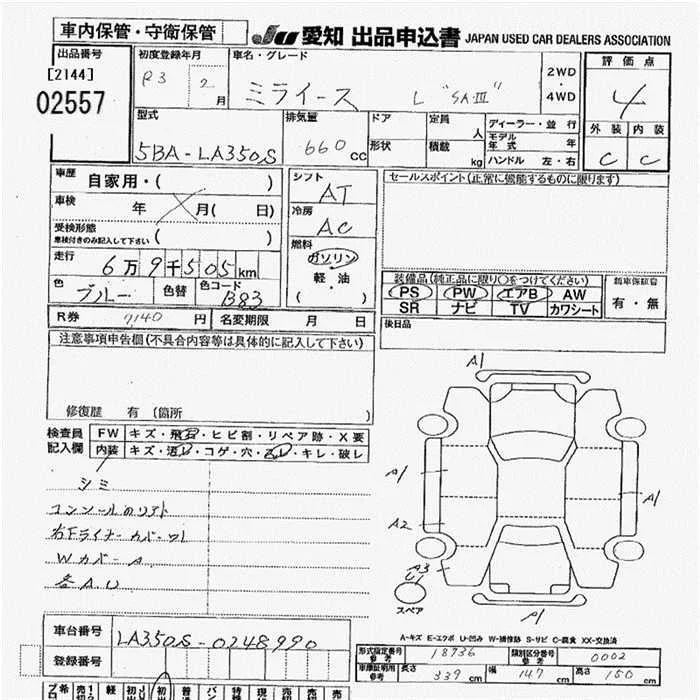 車内保管・守衛保管
JU 愛知 出品申込書 JAPAN USED CAR DEALERS ASSOCIATION
出品番号
[2144]
02557
初度登録年月
R3 2月
車名・グレード
ミライース L "SAⅢ"
2WD
・
4WD
評価点
4
外装 内装
C C
型式
5BA-LA350S
排気量
660cc
ドア
形状
定員
人
積載
kg
ディーラー・並行
モデル年式 年
ハンドル 左・右
車歴
自家用・( )
車検
年 月( 日)
受検形態
車検付きのみ記入して下さい
( )
走行
6万9千505km
色
ブルー
色替
色コード
B83
シフト
AT
冷房
AC
燃料
ガソリン
軽・油
( )
セールスポイント(正常に機能するものに限ります)
装備品(純正品に限り○をつけてください)
PS PW エアB AW
SR ナビ TV カワシート
新車保証書
有・無
R券 7140円
名変期限 月 日
後日品
注意事項申告欄(不具合内容等は具体的に記入して下さい)
修復歴 有(箇所 )
検査員
記入欄
FW キズ・飛石・ヒビ割・リペア跡・X要
内装 キズ・汚レ・コゲ・穴・スレ・キレ・破レ
シミ
コンソールのリアト
右Fライナーカバーワレ
WカバーA
各A.U
A1
A1
A1
A2
A3
U1
A1
スペア
A-キズ E-エクボ U-凹み W-補修跡 S-サビ C-腐食 XX-交換済
車台番号
LA350S-0248990
登録番号
形式指定番号
参考
18736
類別区分番号
参考
0002
車庫証明用
参考
長さ 339cm
幅 147cm
高さ 150cm